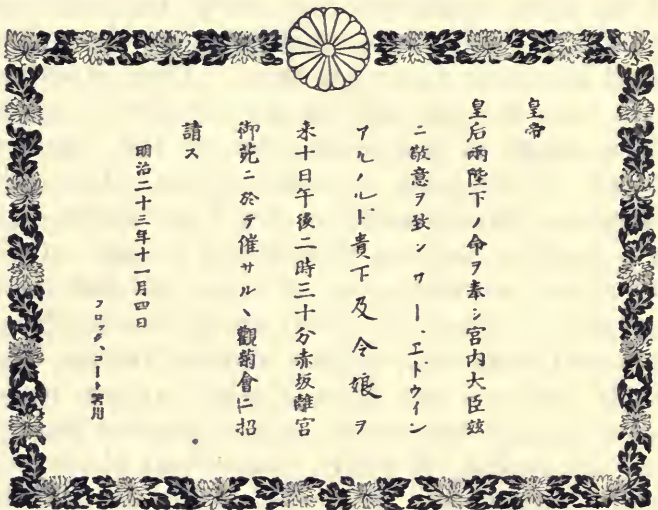 皇帝
皇后両陛下ノ命ヲ奉シ宮内大臣玆
ニ敬意ヲ致シサー、エドウイン
アルノルド貴下及令娘ヲ
来十日午後二時三十分赤坂離宮
御苑ニ於テ催サルヽ觀菊會ニ招
請ス
明治二十三年十一月四日
フロック、コート着用